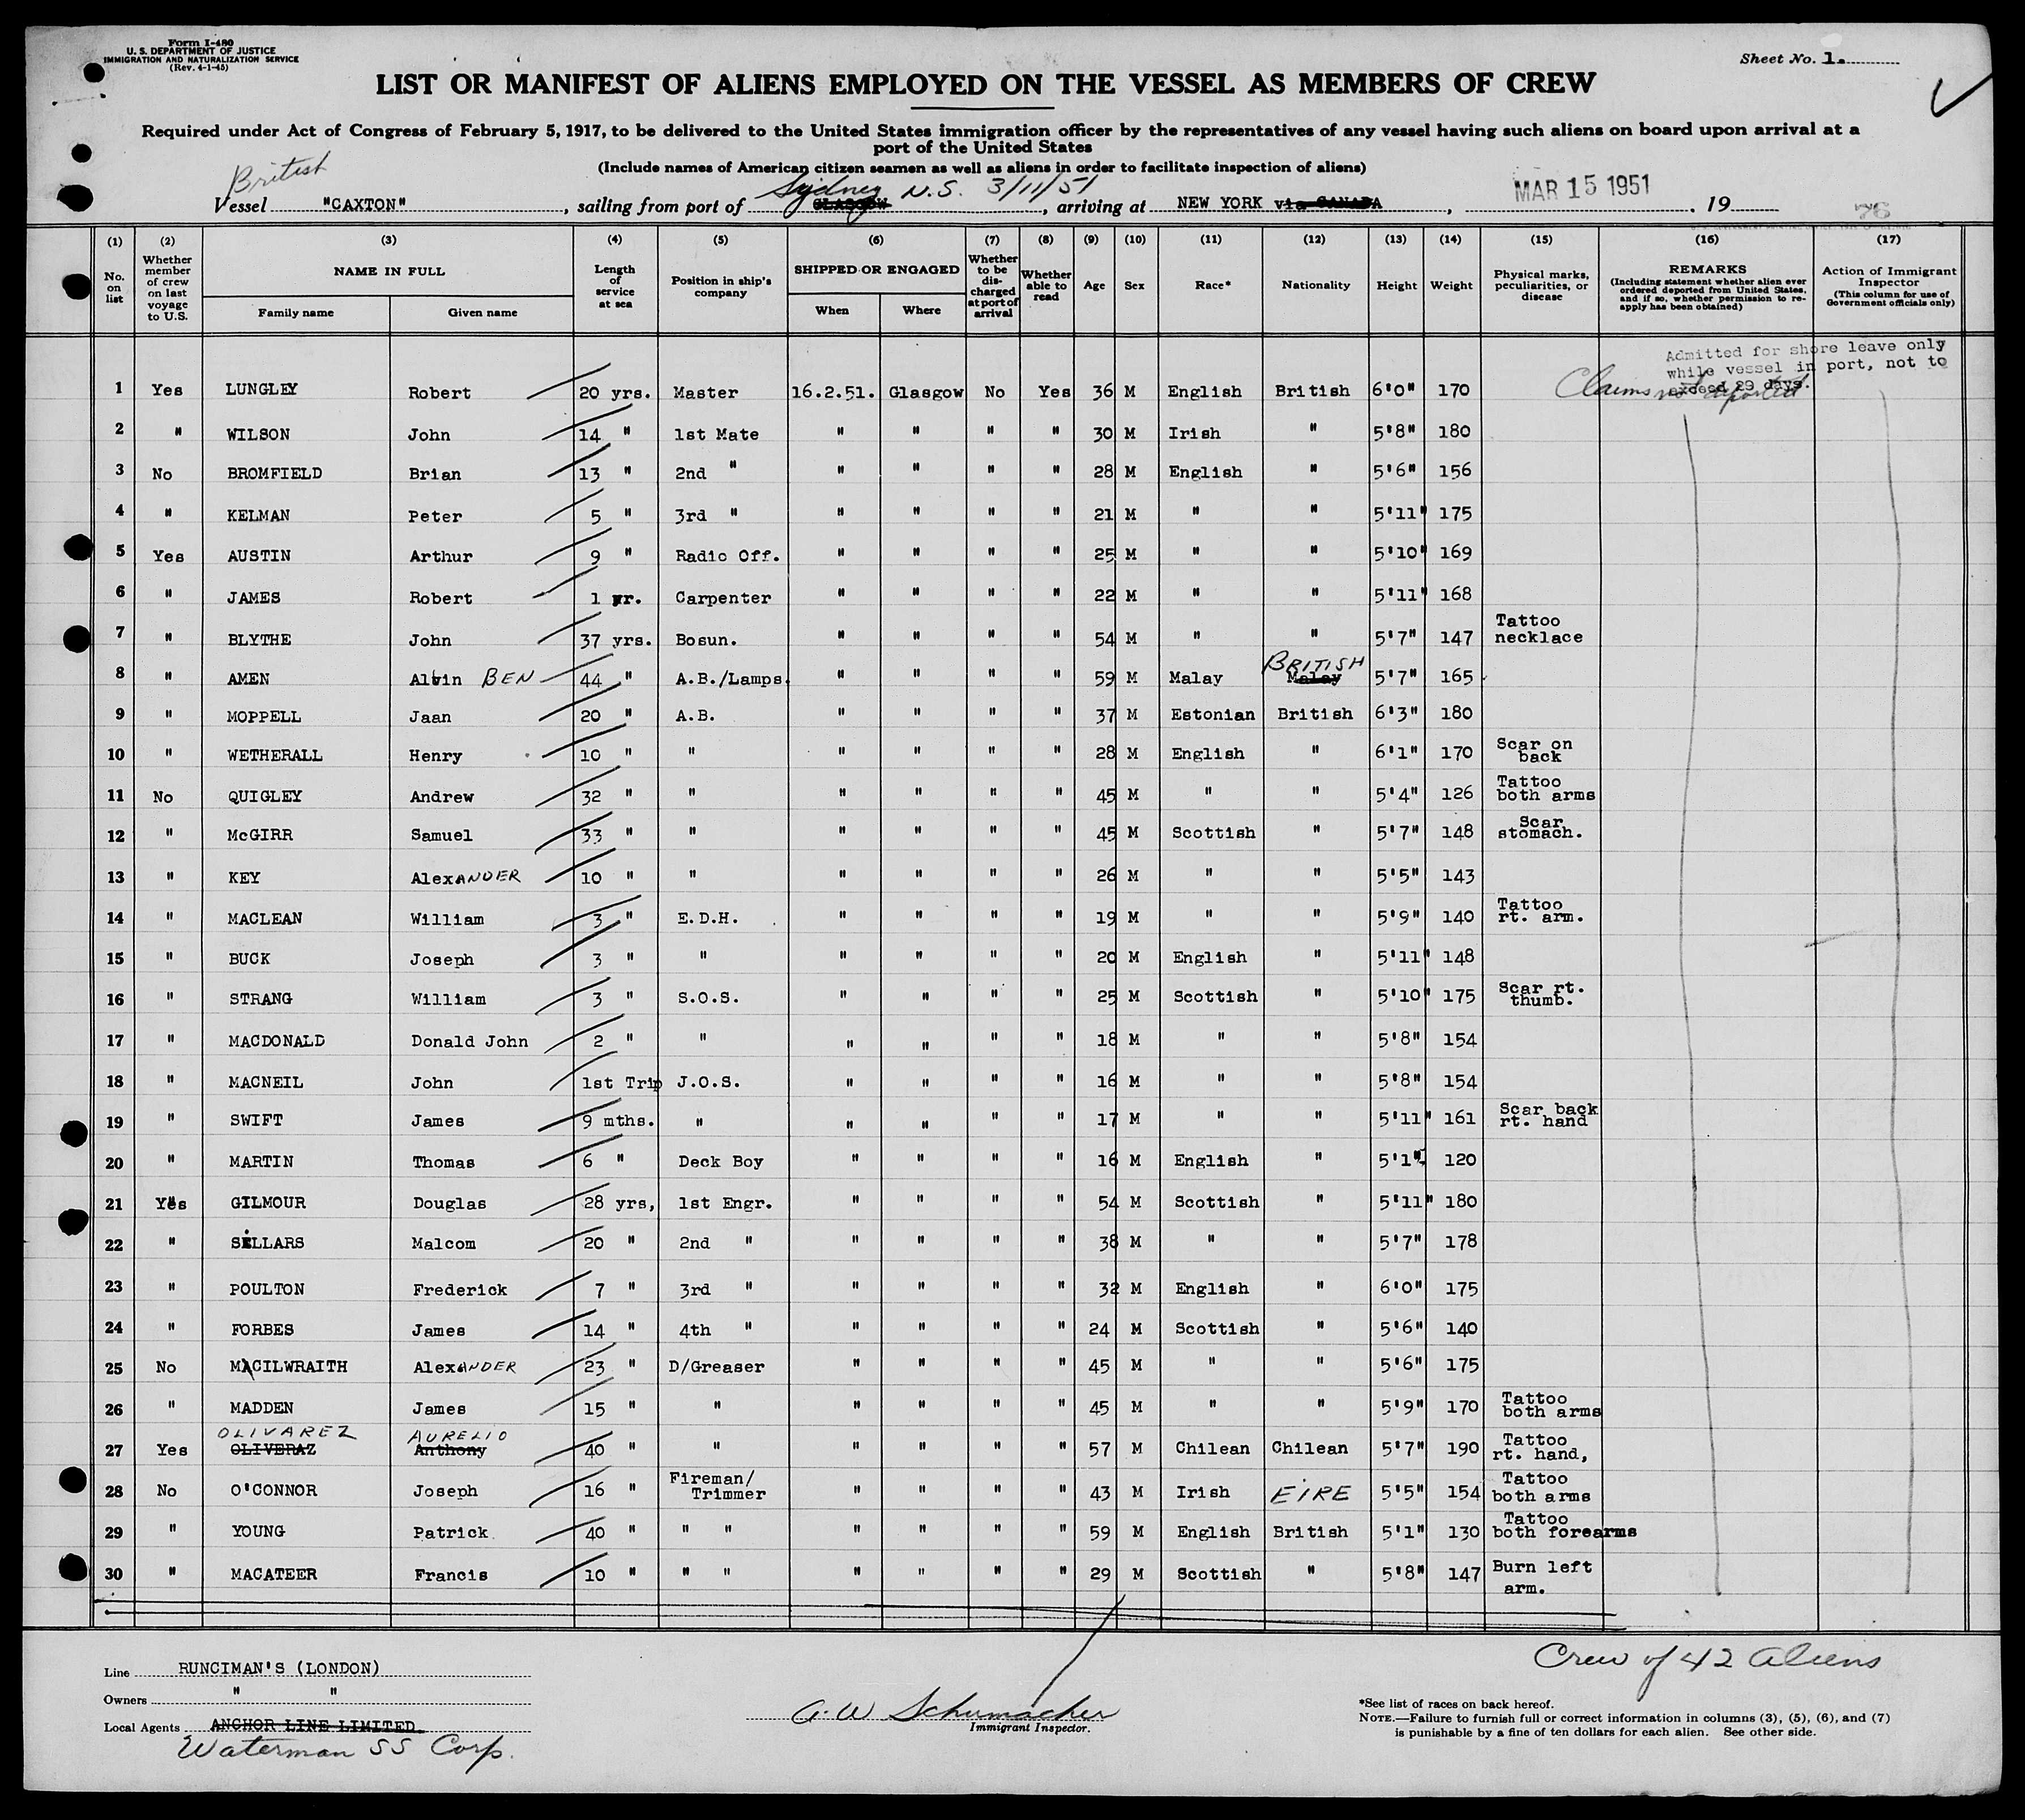 Form I-480
U. S. DEPARTMENT OF JUSTICE
IMMIGRATION AND NATURALIZATION SERVICE
(Rev. 4-1-45)
Sheet No. 1.
LIST OR MANIFEST OF ALIENS EMPLOYED ON THE VESSEL AS MEMBERS OF CREW
Required under Act of Congress of February 5, 1917, to be delivered to the United States immigration officer by the representatives of any vessel having such aliens on board upon arrival at a
port of the United States
(Include names of American citizen seamen as well as aliens in order to facilitate inspection of aliens)
British
Sydney N.S. 3/11/51
MAR 15 1951
Vessel "CAXTON", sailing from port of GLASGOW, arriving at NEW YORK via CANADA, 19
76
(1) (2) (3) (4) (5) (6) (7) (8) (9) (10) (11) (12) (13) (14) (15) (16) (17)
No. on list Whether member of crew on last voyage to U.S. NAME IN FULL Family name Given name Length of service at sea Position in ship's company SHIPPED OR ENGAGED When Where Whether to be discharged at port of arrival Whether able to read Age Sex Race* Nationality Height Weight Physical marks, peculiarities, or disease REMARKS (Including statement whether alien ever ordered deported from United States, and if so, whether permission to re-apply has been obtained) Action of Immigrant Inspector (This column for use of Government officials only)
Admitted for shore leave only
while vessel in port, not to
exceed 29 days.
Claims not deported
1 Yes LUNGLEY Robert 20 yrs. Master 16.2.51. Glasgow No Yes 36 M English British 6'0" 170
2 " WILSON John 14 " 1st Mate " " " " 30 M Irish " 5'8" 180
3 No BROMFIELD Brian 13 " 2nd " " " " " 28 M English " 5'6" 156
4 " KELMAN Peter 5 " 3rd " " " " " 21 M " " 5'11" 175
5 Yes AUSTIN Arthur 9 " Radio Off. " " " " 25 M " " 5'10" 169
6 " JAMES Robert 1 yr. Carpenter " " " " 22 M " " 5'11" 168
7 " BLYTHE John 37 yrs. Bosun. " " " " 54 M " " 5'7" 147 Tattoo necklace
8 " AMEN Alvin BEN 44 " A.B./Lamps. " " " " 59 M Malay BRITISH Malay 5'7" 165
9 " MOPPELL Jaan 20 " A.B. " " " " 37 M Estonian British 6'3" 180
10 " WETHERALL Henry 10 " " " " " " 28 M English " 6'1" 170 Scar on back
11 No QUIGLEY Andrew 32 " " " " " " 45 M " " 5'4" 126 Tattoo both arms
12 " McGIRR Samuel 33 " " " " " " 45 M Scottish " 5'7" 148 Scar stomach.
13 " KEY AlexANDER 10 " " " " " " 26 M " " 5'5" 143
14 " MACLEAN William 3 " E.D.H. " " " " 19 M " " 5'9" 140 Tattoo rt. arm.
15 " BUCK Joseph 3 " " " " " " 20 M English " 5'11" 148
16 " STRANG William 3 " S.O.S. " " " " 25 M Scottish " 5'10" 175 Scar rt. thumb.
17 " MACDONALD Donald John 2 " " " " " " 18 M " " 5'8" 154
18 " MACNEIL John 1st Trip J.O.S. " " " " 16 M " " 5'8" 154
19 " SWIFT James 9 mths. " " " " " 17 M " " 5'11" 161 Scar back rt. hand
20 " MARTIN Thomas 6 " Deck Boy " " " " 16 M English " 5'1" 120
21 Yes GILMOUR Douglas 28 yrs, 1st Engr. " " " " 54 M Scottish " 5'11" 180
22 " SELLARS Malcom 20 " 2nd " " " " " 38 M " " 5'7" 178
23 " POULTON Frederick 7 " 3rd " " " " " 32 M English " 6'0" 175
24 " FORBES James 14 " 4th " " " " " 24 M Scottish " 5'6" 140
25 No MACILWRAITH AlexANDER 23 " D/Greaser " " " " 45 M " " 5'6" 175
26 " MADDEN James 15 " " " " " " 45 M " " 5'9" 170 Tattoo both arms
OLIVAREZ AURELIO
27 Yes OLIVERAZ Anthony 40 " " " " " " 57 M Chilean Chilean 5'7" 190 Tattoo rt. hand,
28 No O'CONNOR Joseph 16 " Fireman/ Trimmer " " " " 43 M Irish EIRE 5'5" 154 Tattoo both arms
29 " YOUNG Patrick 40 " " " " " " " 59 M English British 5'1" 130 Tattoo both forearms
30 " MACATEER Francis 10 " " " " " " " 29 M Scottish " 5'8" 147 Burn left arm.
Crew of 42 aliens
Line RUNCIMAN'S (LONDON)
Owners " "
Local Agents ANCHOR LINE LIMITED
Waterman SS Corp.
A. W Schumacher
Immigrant Inspector.
*See list of races on back hereof.
NOTE.—Failure to furnish full or correct information in columns (3), (5), (6), and (7)
is punishable by a fine of ten dollars for each alien. See other side.